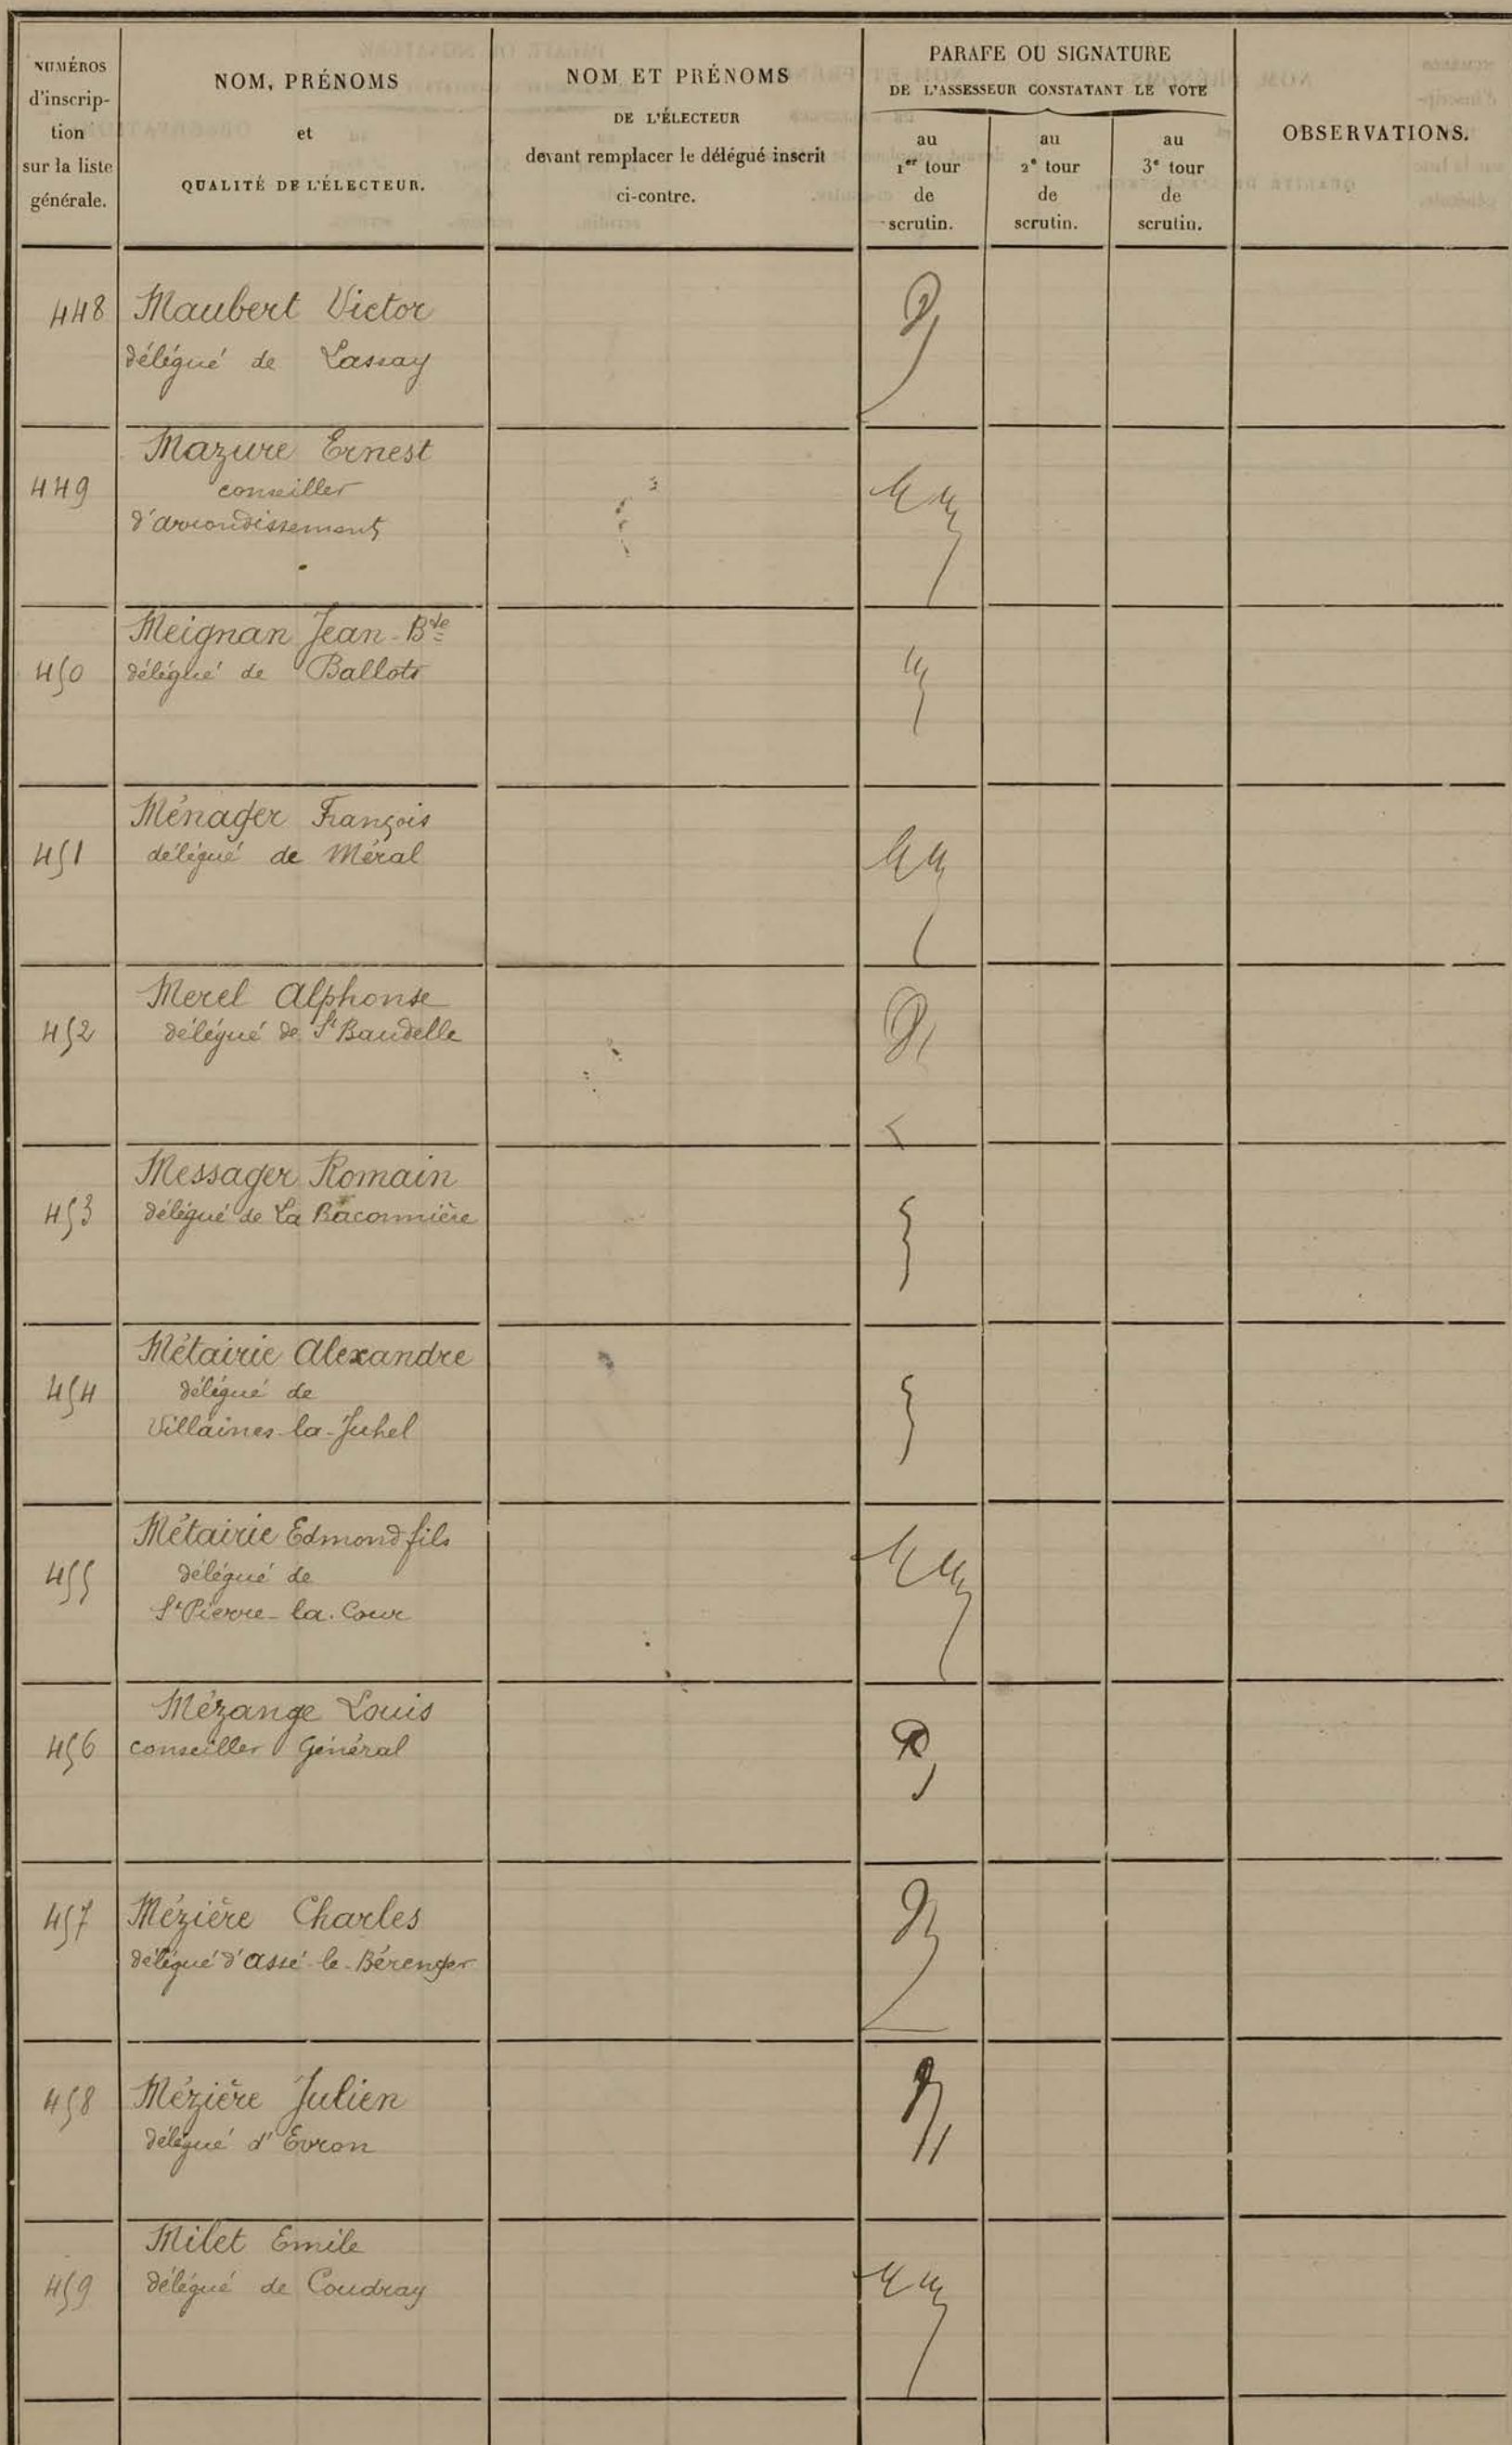 NUMÉROS
d'inscrip-
tion
sur la liste
générale.
NOM, PRÉNOMS
et
QUALITÉ DE L'ÉLECTEUR.
NOM ET PRÉNOMS
DE L'ÉLECTEUR
devant remplacer le délégué inscrit
ci-contre.
PARAFE OU SIGNATURE
DE L'ASSESSEUR CONSTATANT LE VOTE
au
1er tour
de
scrutin.
au
2e tour
de
scrutin.
au
3e tour
de
scrutin.
OBSERVATIONS.
448 Maubert Victor
délégué de Lassay
Mazure Ernest
449 conseiller
d'arrondissement
Meignan Jean-Bte
450 délégué de Ballots
Ménager François
451 délégué de Méral
Merel Alphonse
452 délégué de St Baudelle
Messager Romain
453 délégué de La Baconnière
Métairie Alexandre
454 délégué de
Villaines-la-Juhel
Métairie Edmond fils
455 délégué de
St Pierre-la-Cour
Mézange Louis
456 conseiller Général
457 Mézière Charles
délégué d'Assé-le-Bérenger
458 Mézière Julien
délégué d'Evron
Milet Emile
459 délégué de Coudray